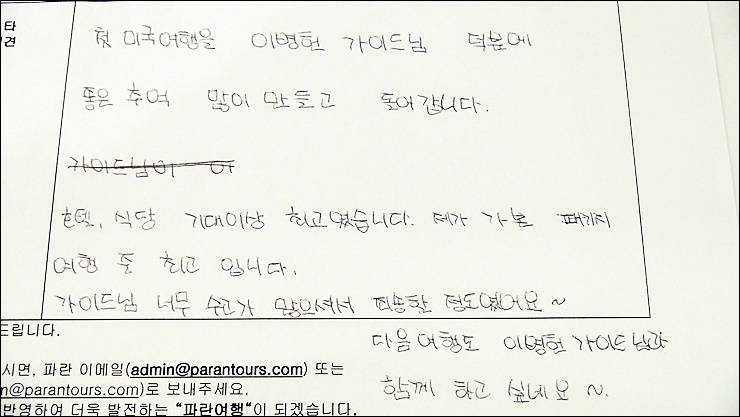 타
견
첫 미국여행을 이병헌 가이드님 덕분에
좋은 추억 많이 만들고 돌아갑니다.
가이드님이 이
호텔, 식당 기대이상 최고였습니다. 제가 가본 패키지
여행 중 최고 입니다.
가이드님 너무 수고가 많으셔서 죄송할 정도였어요~
다음 여행도 이병헌 가이드님과
함께 하고 싶네요~.
드립니다.
시면, 파란 이메일(admin@parantours.com) 또는
n@parantours.com)로 보내주세요.
반영하여 더욱 발전하는 "파란여행"이 되겠습니다.